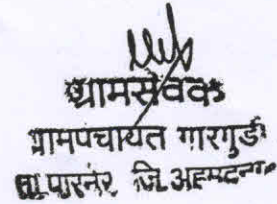 ग्रामसेवक
ग्रामपंचायत गारगुंडी
ता. पारनेर, जि. अहमदनगर